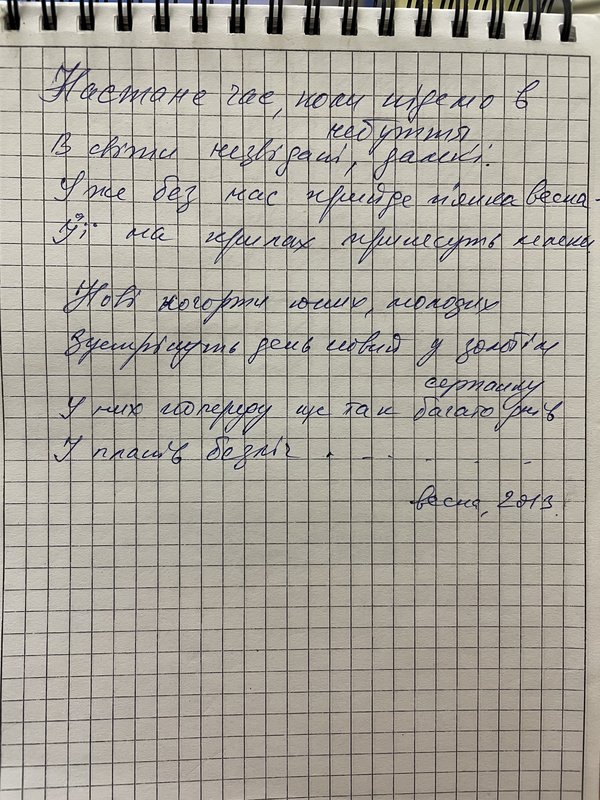 Настане час, коли підемо в
небуття
В світи незвідані, далекі.
Уже без нас прийде п'янка весна -
Її на крилах принесуть лелеки
Нові когорти юних, молодих
Зустрінуть день новий у золотім
серпанку
У них попереду ще так багато днів
І планів безліч . - - . . -
весна, 2013.